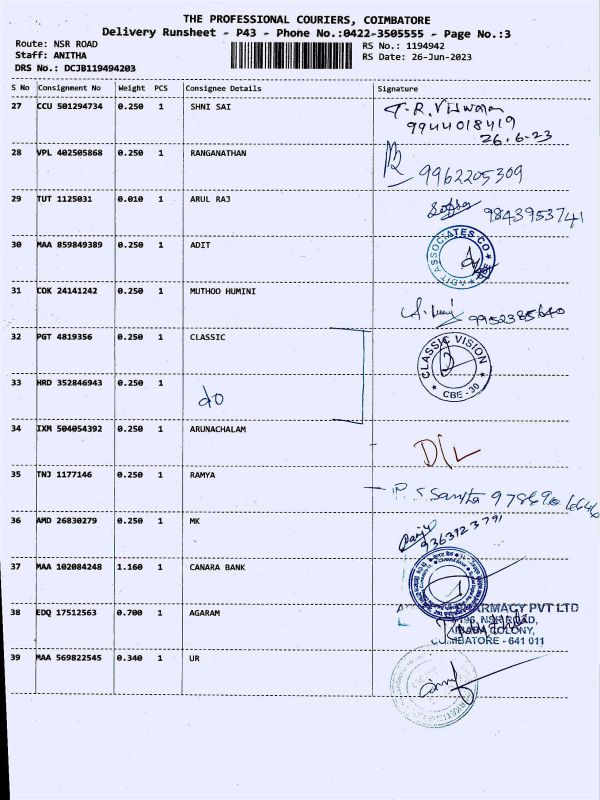 THE PROFESSIONAL COURIERS, COIMBATORE
Delivery Runsheet - P43 - Phone No.:0422-3505555 - Page No.:3
Route: NSR ROAD
Staff: ANITHA
DRS No.: DCJB119494203
RS No.: 1194942
RS Date: 26-Jun-2023
S No Consignment No Weight PCS Consignee Details Signature
27 CCU 501294734 0.250 1 SHNI SAI
T.R.Viswan
9944018419
26.6.23
28 VPL 402505868 0.250 1 RANGANATHAN
9962205309
29 TUT 1125031 0.010 1 ARUL RAJ
9843953741
30 MAA 859849389 0.250 1 ADIT
ADIT ASSOCIATES CO
31 COK 24141242 0.250 1 MUTHOO HUMINI
9952385640
32 PGT 4819356 0.250 1 CLASSIC
CLASSIC VISION
CBE - 30
33 HRD 352846943 0.250 1
do
34 IXM 504054392 0.250 1 ARUNACHALAM
D/L
35 TNJ 1177146 0.250 1 RAMYA
36 AMD 26830279 0.250 1 MK
9363123791
37 MAA 102084248 1.160 1 CANARA BANK
38 EDQ 17512563 0.700 1 AGARAM
ARMACY PVT LTD
196, NSR ROAD,
COLONY,
BATORE - 641 011
39 MAA 569822545 0.340 1 UR